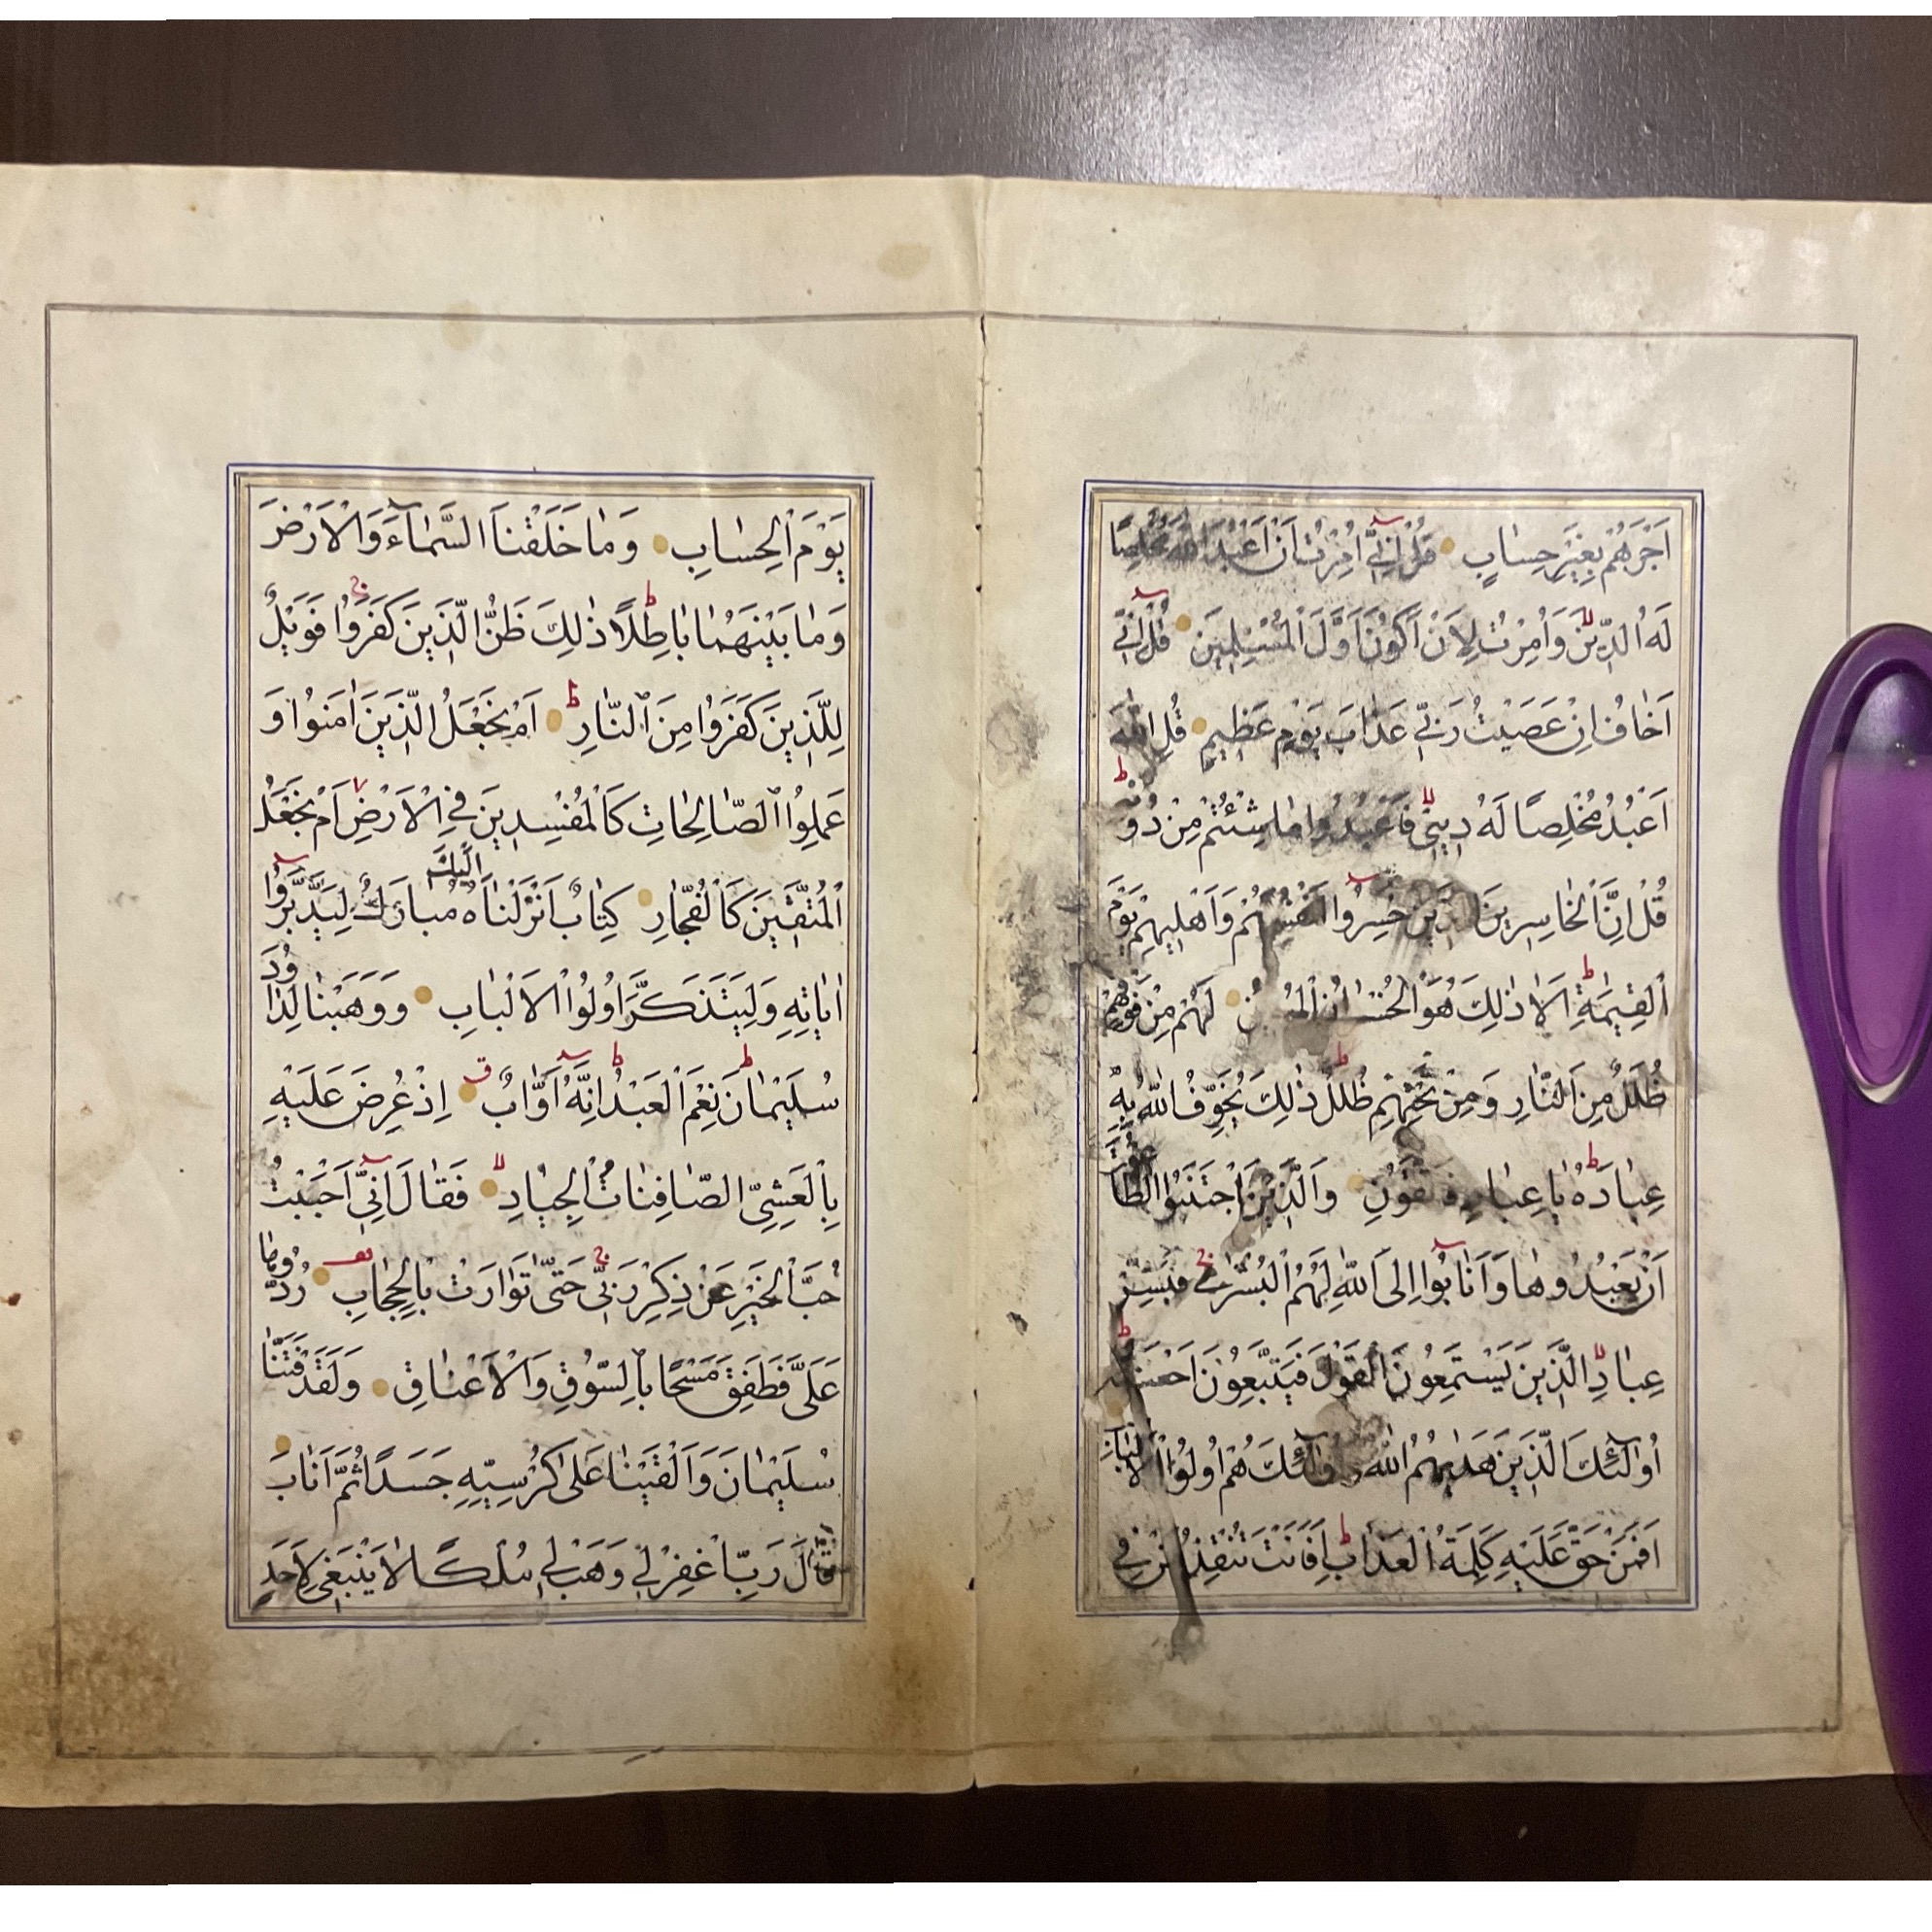 اَجْرَهُمْ بِغَيْرِ حِسٰابٍ قُلْ اِنّٖى اُمِرْتُ اَنْ اَعْبُدَ اللّٰهَ مُخْلِصًا
لَهُ الدّٖينَ وَ اُمِرْتُ لِاَنْ اَكُونَ اَوَّلَ الْمُسْلِمٖينَ قُلْ اِنّٖى
اَخٰافُ اِنْ عَصَيْتُ رَبّٖى عَذٰابَ يَوْمٍ عَظٖيمٍ قُلِ اللّٰهَ
اَعْبُدُ مُخْلِصًا لَهُ دٖينٖى فَاعْبُدُوا مٰا شِئْتُمْ مِنْ دُونِهٖ
قُلْ اِنَّ الْخٰاسِرٖينَ الَّذٖينَ خَسِرُوا اَنْفُسَهُمْ وَ اَهْلٖيهِمْ يَوْمَ
الْقِيٰمَةِ اَلٰا ذٰلِكَ هُوَ الْخُسْرٰانُ الْمُبٖينُ لَهُمْ مِنْ فَوْقِهِمْ
ظُلَلٌ مِنَ النّٰارِ وَ مِنْ تَحْتِهِمْ ظُلَلٌ ذٰلِكَ يُخَوِّفُ اللّٰهُ بِهٖ
عِبٰادَهُ يٰا عِبٰادِ فَاتَّقُونِ وَ الَّذٖينَ اجْتَنَبُوا الطّٰاغُوتَ
اَنْ يَعْبُدُوهٰا وَ اَنٰابُوا اِلَى اللّٰهِ لَهُمُ الْبُشْرٰى فَبَشِّرْ
عِبٰادِ الَّذٖينَ يَسْتَمِعُونَ الْقَوْلَ فَيَتَّبِعُونَ اَحْسَنَهُ
اُولٰئِكَ الَّذٖينَ هَدٰيهُمُ اللّٰهُ وَ اُولٰئِكَ هُمْ اُولُوا الْاَلْبٰابِ
اَفَمَنْ حَقَّ عَلَيْهِ كَلِمَةُ الْعَذٰابِ اَفَاَنْتَ تُنْقِذُ مَنْ فِى
يَوْمَ الْحِسٰابِ وَ مٰا خَلَقْنَا السَّمٰاءَ وَ الْاَرْضَ
وَ مٰا بَيْنَهُمٰا بٰاطِلًا ذٰلِكَ ظَنُّ الَّذٖينَ كَفَرُوا فَوَيْلٌ
لِلَّذٖينَ كَفَرُوا مِنَ النّٰارِ اَمْ نَجْعَلُ الَّذٖينَ اٰمَنُوا وَ
عَمِلُوا الصّٰالِحٰاتِ كَالْمُفْسِدٖينَ فِى الْاَرْضِ اَمْ نَجْعَلُ
الْمُتَّقٖينَ كَالْفُجّٰارِ كِتٰابٌ اَنْزَلْنٰاهُ اِلَيْكَ مُبٰارَكٌ لِيَدَّبَّرُوا
اٰيٰاتِهٖ وَ لِيَتَذَكَّرَ اُولُوا الْاَلْبٰابِ وَ وَهَبْنٰا لِدٰاوُدَ
سُلَيْمٰانَ نِعْمَ الْعَبْدُ اِنَّهُ اَوّٰابٌ اِذْ عُرِضَ عَلَيْهِ
بِالْعَشِىِّ الصّٰافِنٰاتُ الْجِيٰادُ فَقٰالَ اِنّٖى اَحْبَبْتُ
حُبَّ الْخَيْرِ عَنْ ذِكْرِ رَبّٖى حَتّٰى تَوٰارَتْ بِالْحِجٰابِ رُدُّوهٰا
عَلَىَّ فَطَفِقَ مَسْحًا بِالسُّوقِ وَ الْاَعْنٰاقِ وَ لَقَدْ فَتَنّٰا
سُلَيْمٰانَ وَ اَلْقَيْنٰا عَلٰى كُرْسِيِّهٖ جَسَدًا ثُمَّ اَنٰابَ
قٰالَ رَبِّ اغْفِرْ لٖى وَ هَبْ لٖى مُلْكًا لٰا يَنْبَغٖى لِاَحَدٍ